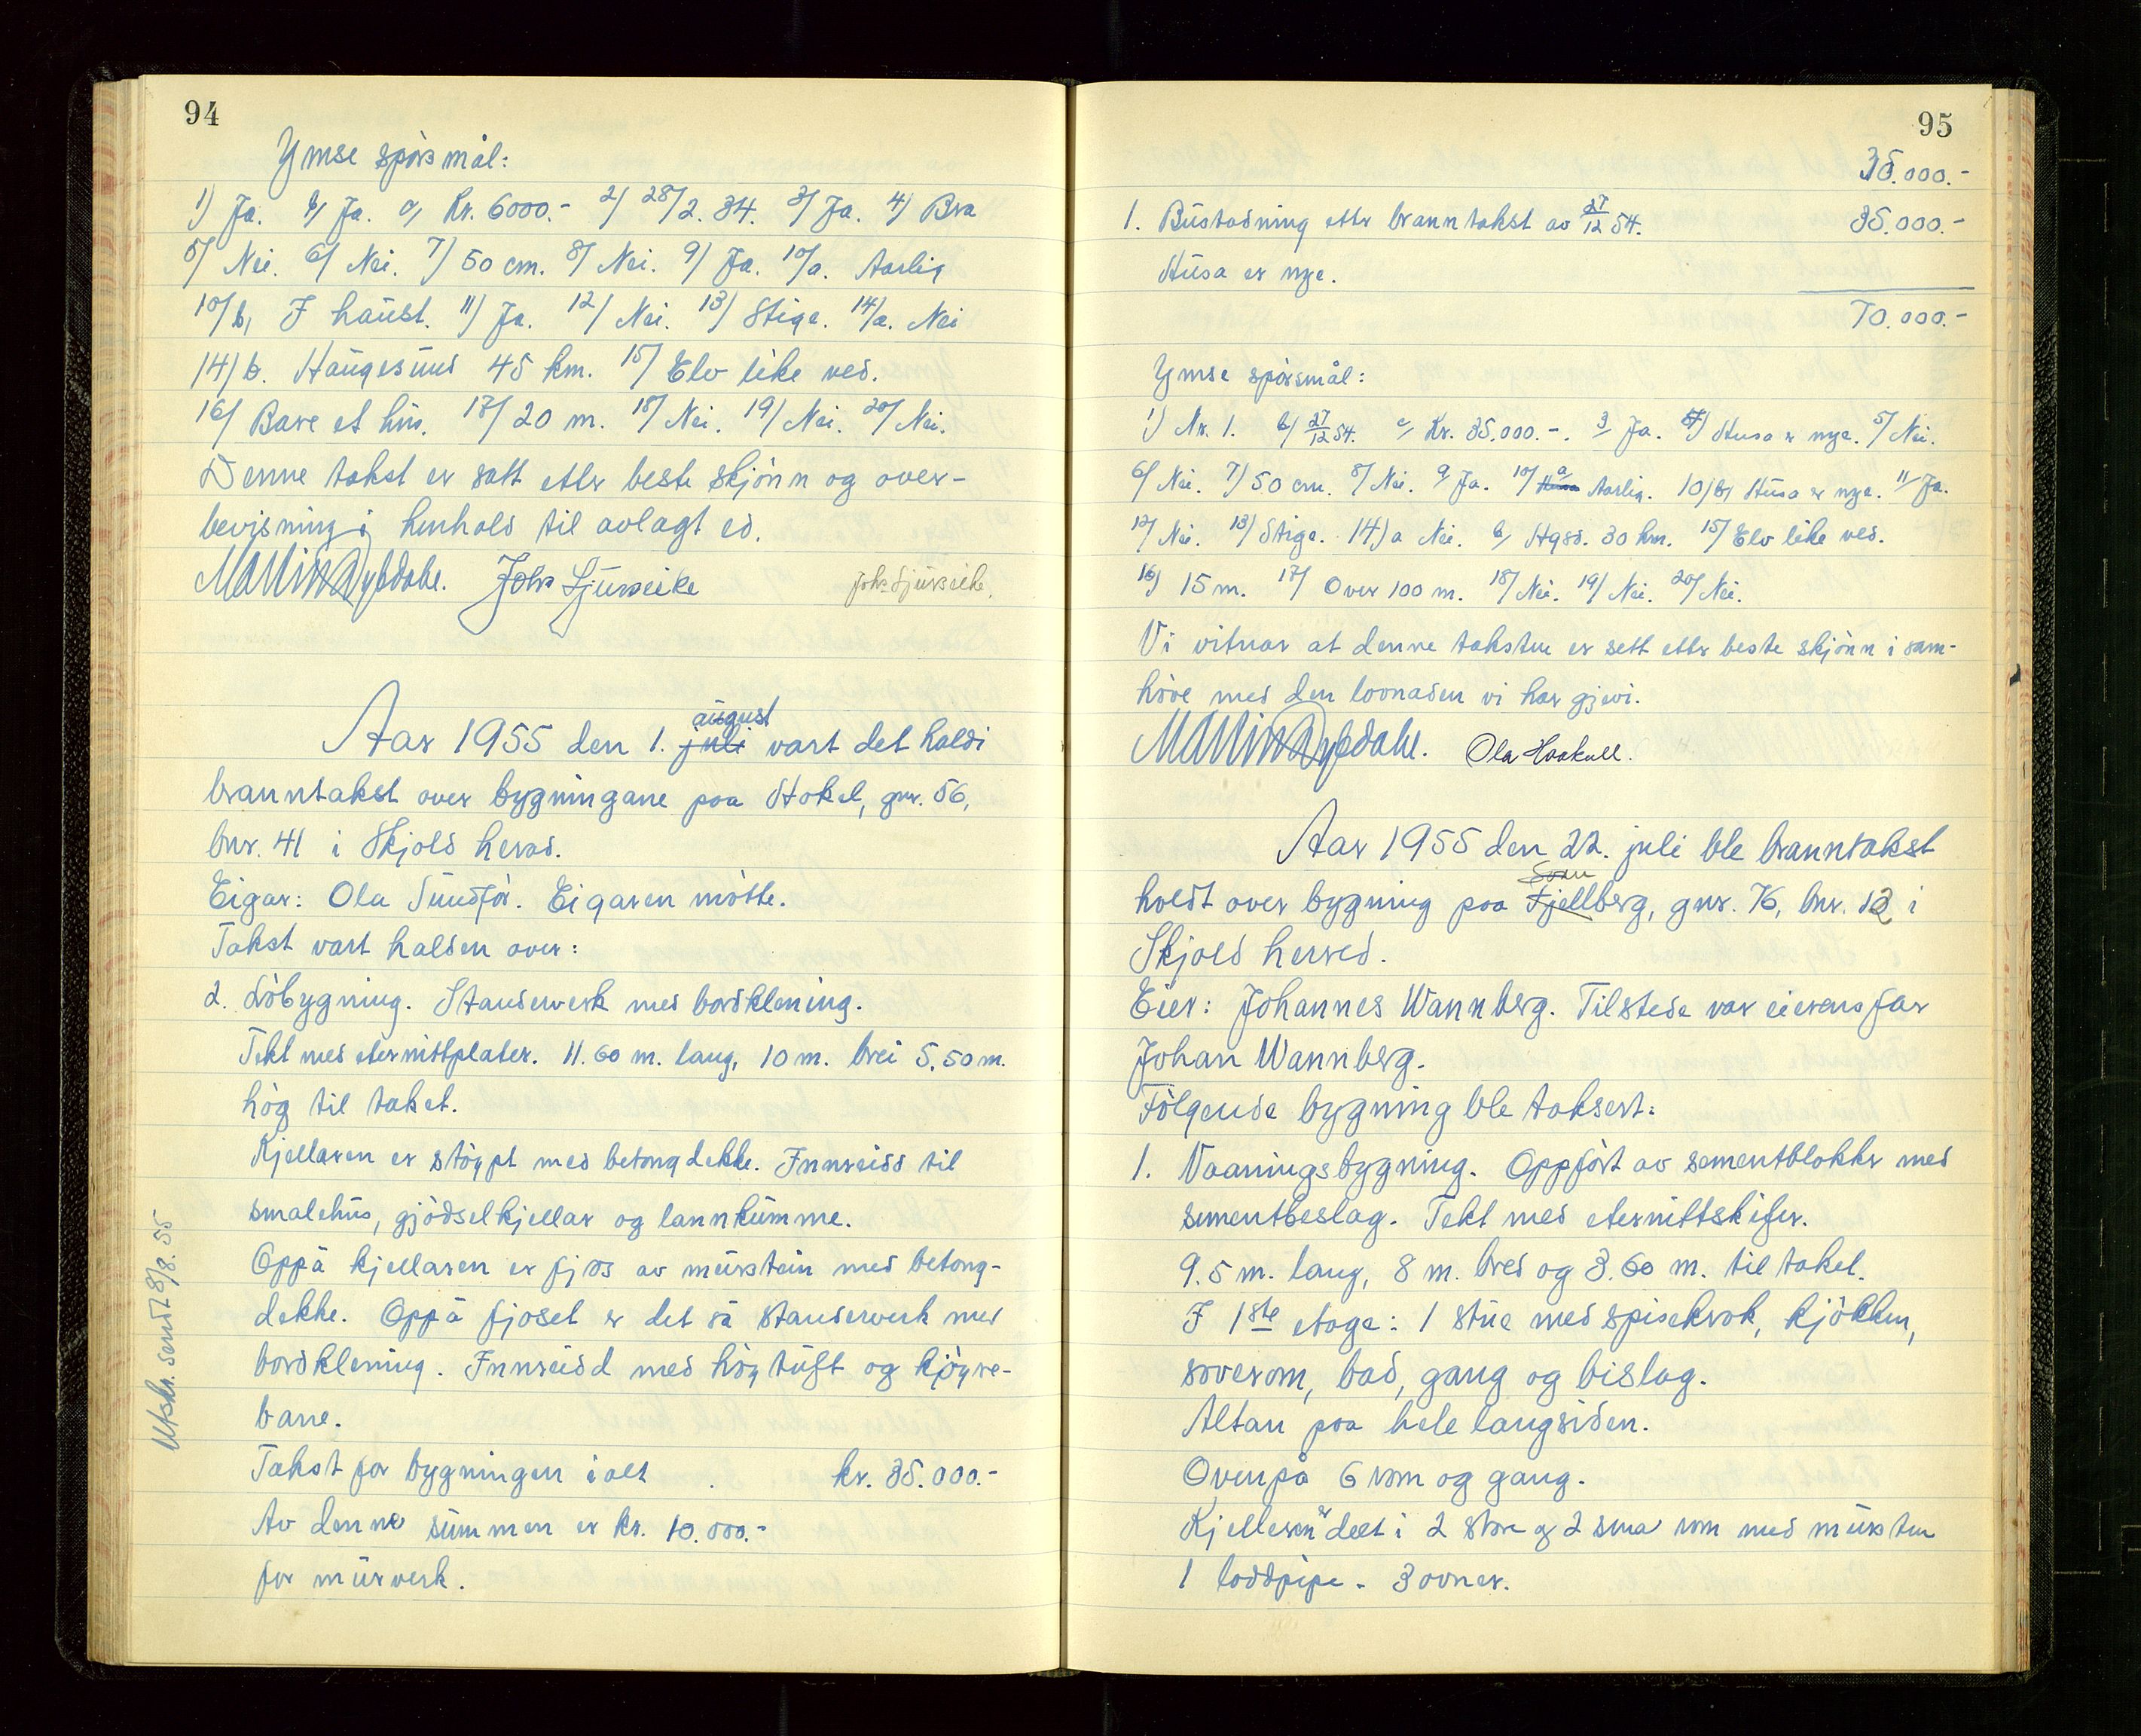 94
Ymse spørsmål:
1) Ja. b, Ja. c, Kr. 6000.- 2) 28/2. 34. 3) Ja. 4) Bra
5) Nei. 6) Nei. 7) 50 cm. 8) Nei. 9) Ja. 10/a. Aarlig
10/b, I haust. 11) Ja. 12) Nei. 13) Stige. 14/a. Nei
14) b. Haugesund 45 km. 15) Elv like ved.
16) Bare et hus. 17) 20 m. 18) Nei. 19) Nei. 20) Nei.
Denne takst er satt etter beste skjønn og over-
bevisning i henhold til avlagt ed.
Johs Ljusseike Johs Ljusseike.
Aar 1955 den 1. juli august vart det haldi
branntakst over bygningane paa Stokel, gnr. 56,
bnr. 41 i Skjold herad.
Eigar: Ola Sundfør. Eigaren møtte.
Takst vart halden over:
2. Løbygning. Standerverk med bordklening.
Tekt med eternittplater. 11.60 m. lang, 10 m. brei 5.50 m.
høg til taket.
Kjellaren er støypt med betongdekke. Innreidd til
smalehus, gjødselkjellar og lannkumme.
Oppå kjellaren er fjos av murstein med betong-
dekke. Oppå fjoset er det så standerverk med
bordklening. Innreidd med høytuft og kjøyre-
bane.
Takst for bygningen i alt . kr. 35.000.-
Av denne summen er kr. 10.000.-
for murverk.
Utskr. sendt 8/8. 55
95
35.000.-
1. Bustadning etter branntakst av 27/12 54. 35.000.-
Husa er nye.
70.000.-
Ymse spørsmål:
1) Nr. 1. b) 27/12 54. c, Kr. 35.000.-. 3/ Ja. 4) Husa er nye. 5) Nei.
6) Nei. 7) 50 cm. 8) Nei. 9 Ja. 10) a Aarlig. 10) b) Husa er nye. 11) Ja.
12) Nei. 13) Stige. 14) a Nei. b, Hgsd. 30 km. 15) Elv like ved.
16) 15 m. 17) Over 100 m. 18) Nei. 19) Nei. 20) Nei.
Vi vitnar at denne taksten er sett etter beste skjønn i sam-
høve med den lovnaden vi har gjevi.
Ola Haakull.
Aar 1955 den 22. juli ble branntakst
holdt over bygning paa Fjellberg, gnr. 76, bnr. 12 i
Skjold herred.
Eier: Johannes Wannberg. Tilstede var eierens far
Johan Wannberg.
Følgende bygning ble taksert:
1. Vaaningsbygning. Oppført av sementblokker med
sementbeslag. Tekt med eternittskifer.
9.5 m. lang, 8 m. bred og 3.60 m. til taket.
I 1ste etage: 1 stue med spisekrok, kjøkken,
soverom, bad, gang og bislag.
Altan paa hele langsiden.
Ovenpå 6 rom og gang.
Kjelleren er delt i 2 store og 2 små rom med murstein
1 loddpipe. 3 ovner.